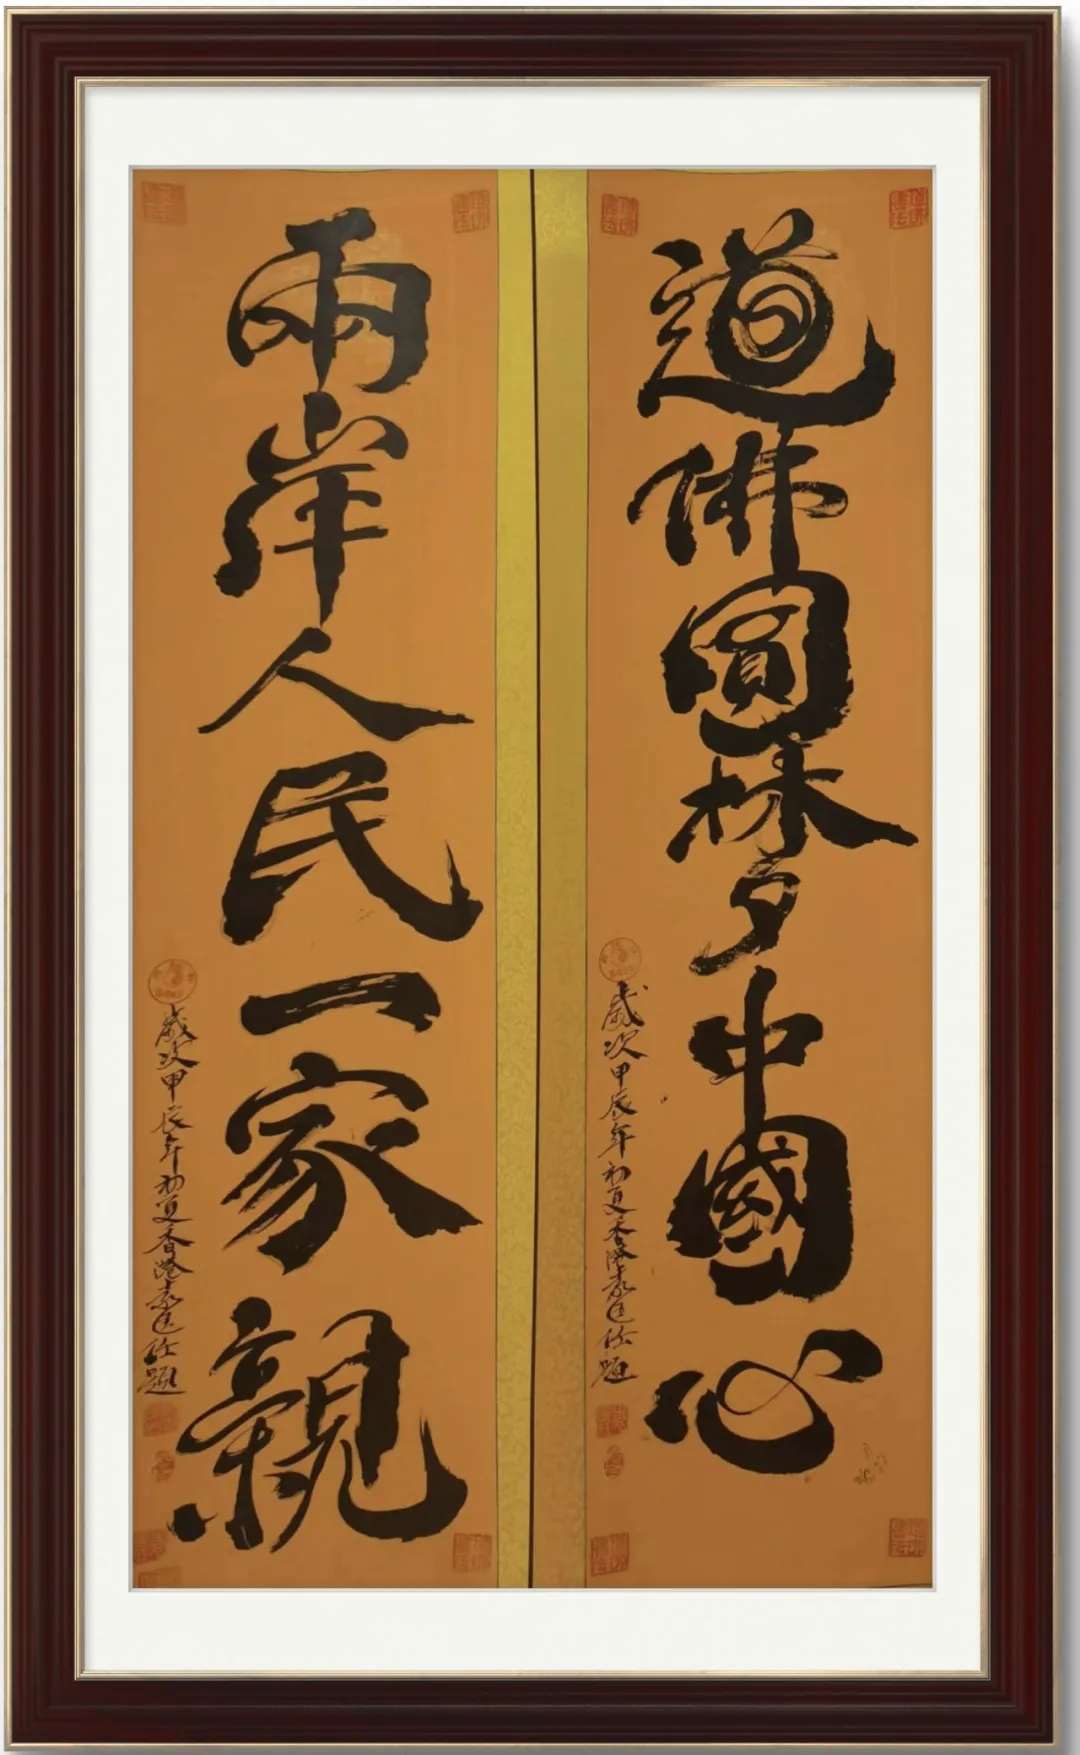 道佛圓梦中國心
歲次甲辰年初夏香港袁匡佐題
兩岸人民一家親
歲次甲辰年初夏香港袁匡佐題